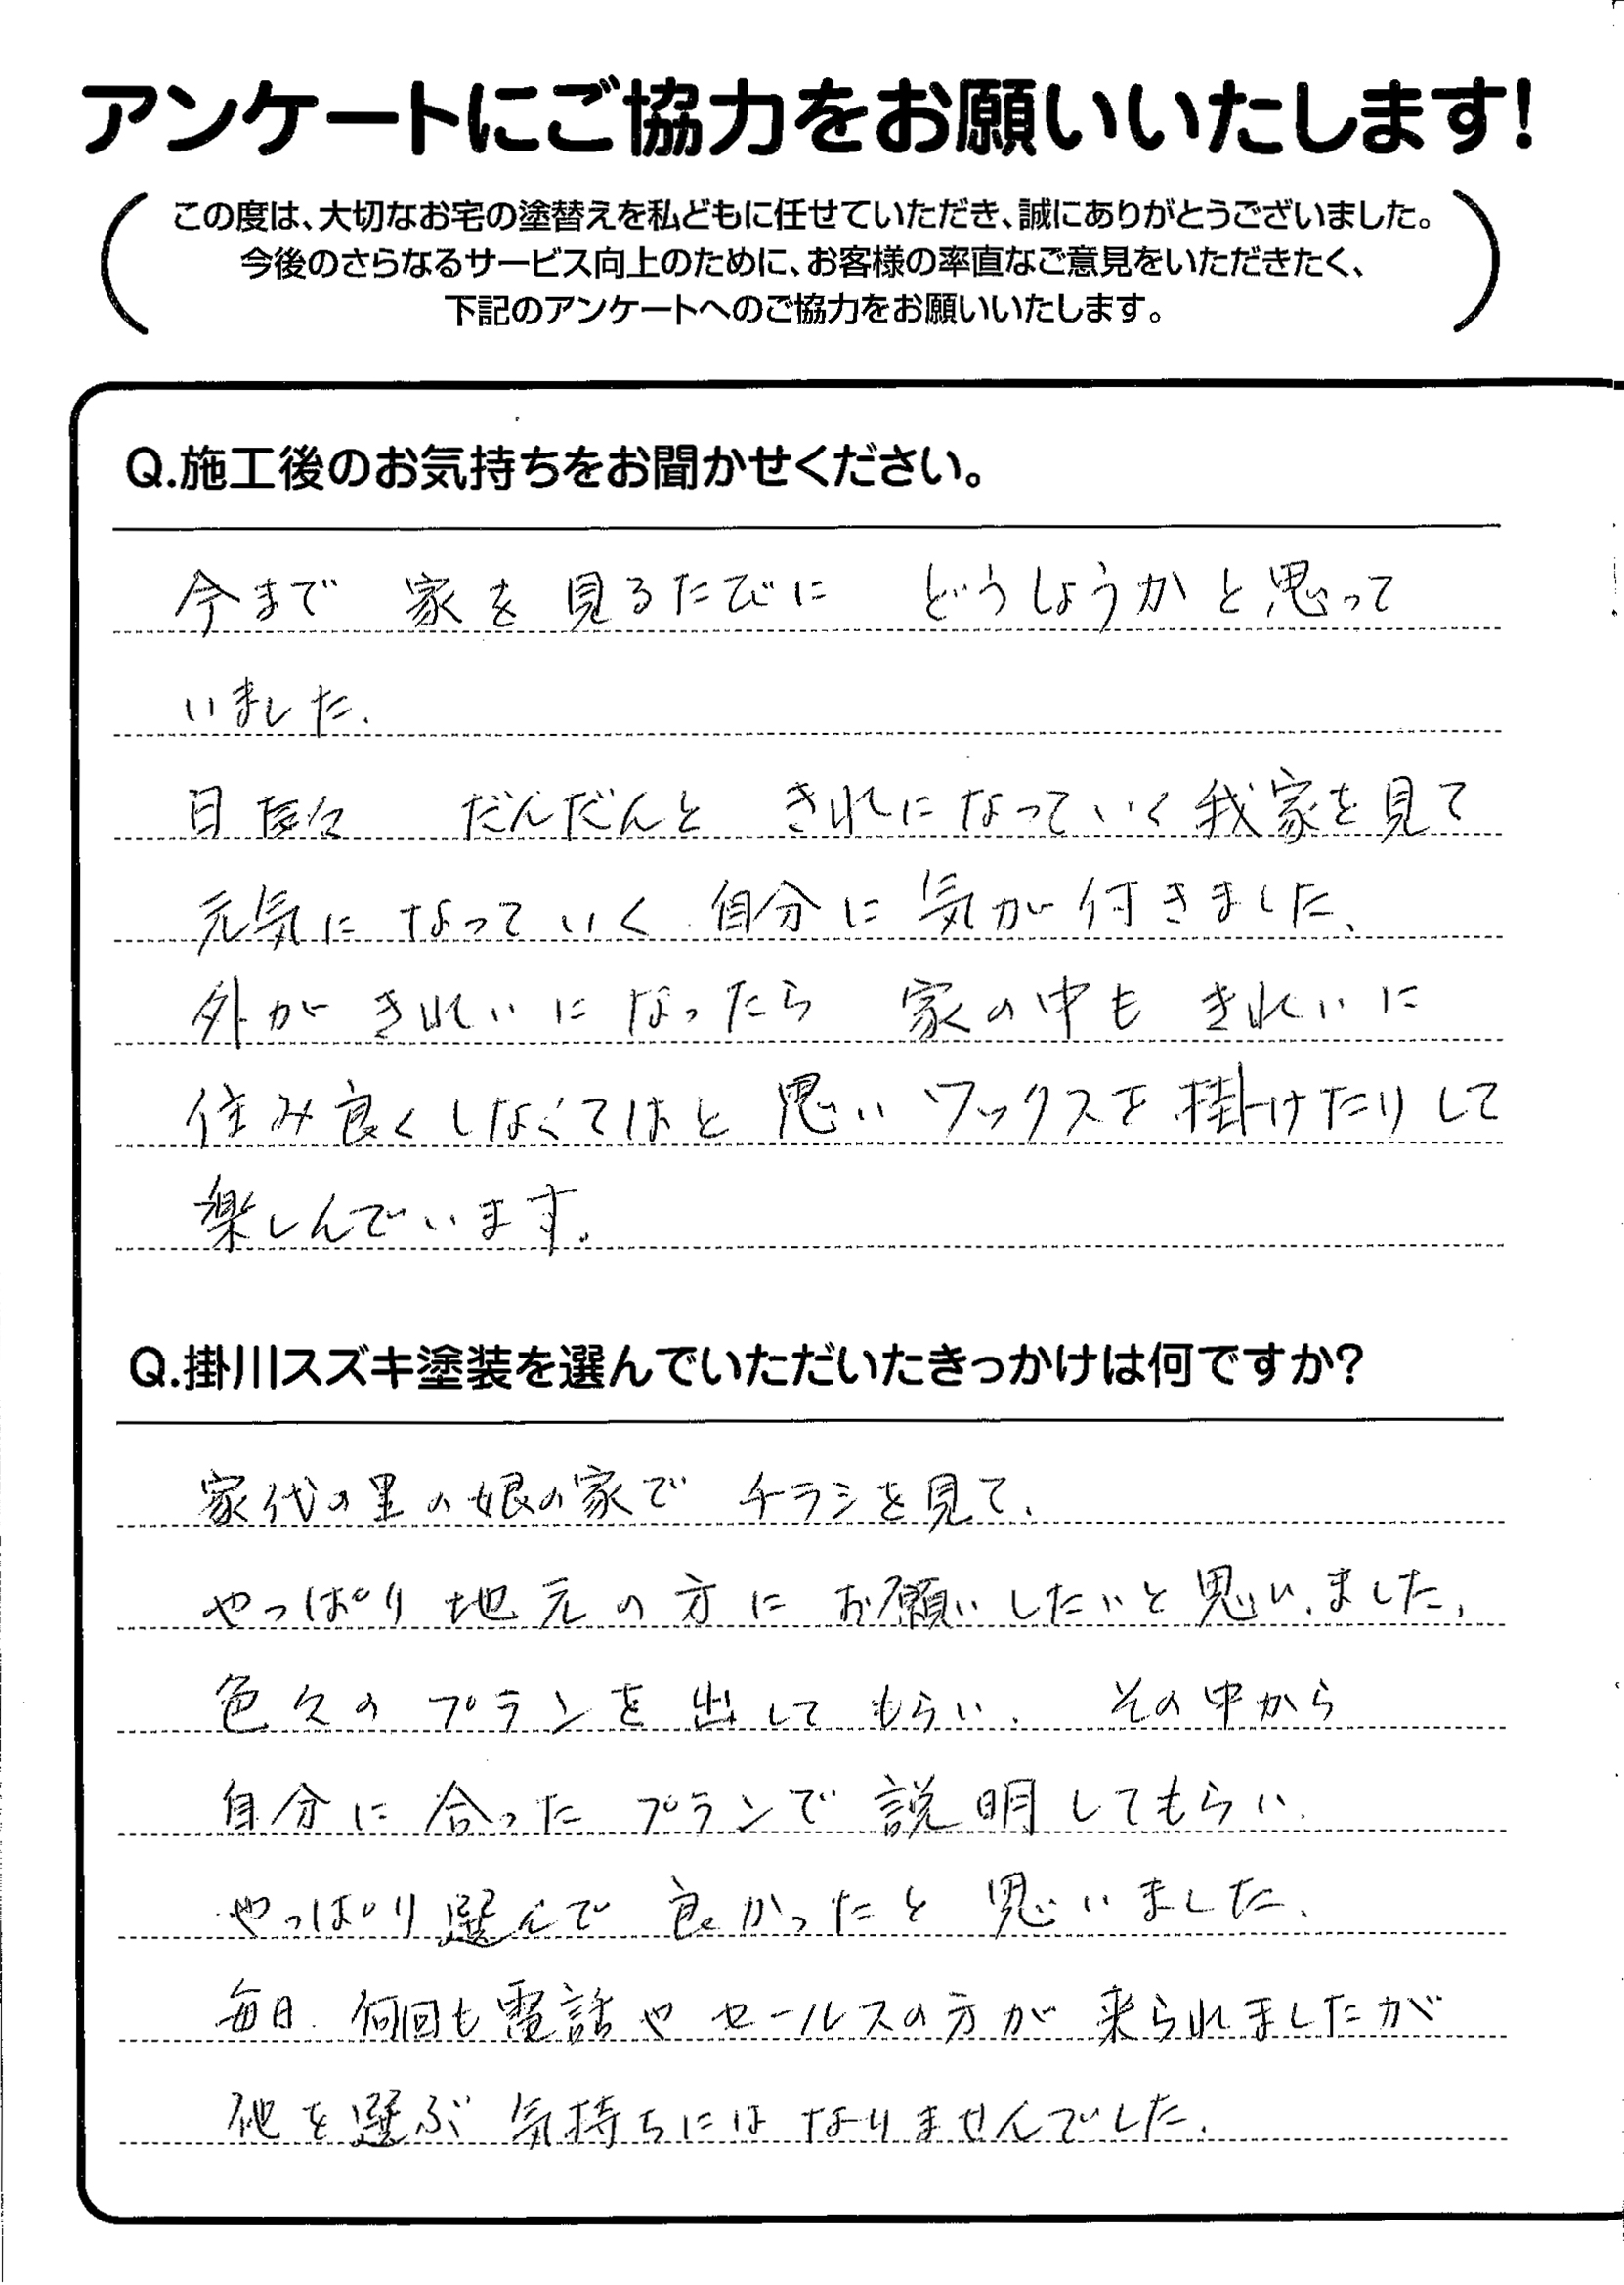 アンケートにご協力をお願いいたします!
この度は、大切なお宅の塗替えを私どもに任せていただき、誠にありがとうございました。
今後のさらなるサービス向上のために、お客様の率直なご意見をいただきたく、
下記のアンケートへのご協力をお願いいたします。
Q.施工後のお気持ちをお聞かせください。
今まで 家を見るたびに どうしようかと思って
いました.
日 々 だんだんと きれになっていく我家を見て
元気になっていく 自分に気が付きました、
外がきれいになったら 家の中もきれいに
住み良くしなくてはと思いワックスを掛けたりして
楽しんでいます.
Q.掛川スズキ塗装を選んでいただいたきっかけは何ですか?
家代の里の娘の家で チラシを見て.
やっぱり地元の方にお願いしたいと思いました,
色々のプランを出してもらい. その中から
自分に合ったプランで説明してもらい.
やっぱり選んで良かったと思いました.
毎日.何回も電話やセールスの方が来られましたが
他を選ぶ気持ちにはなりませんでした.